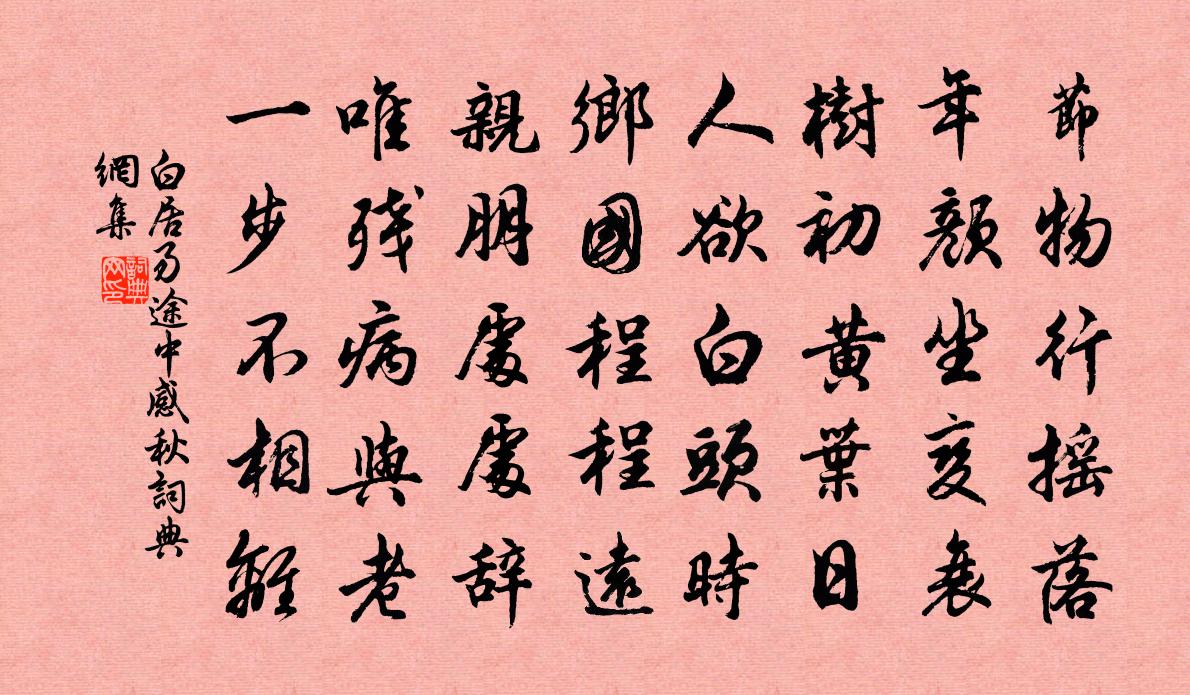 節物行摇落
年顏坐變衰
樹初黃葉日
人欲白頭時
鄉國程程遠
親朋處處辞
唯残病與老
一步不相離
白居易途中感秋詞典
網集
詞典
网印